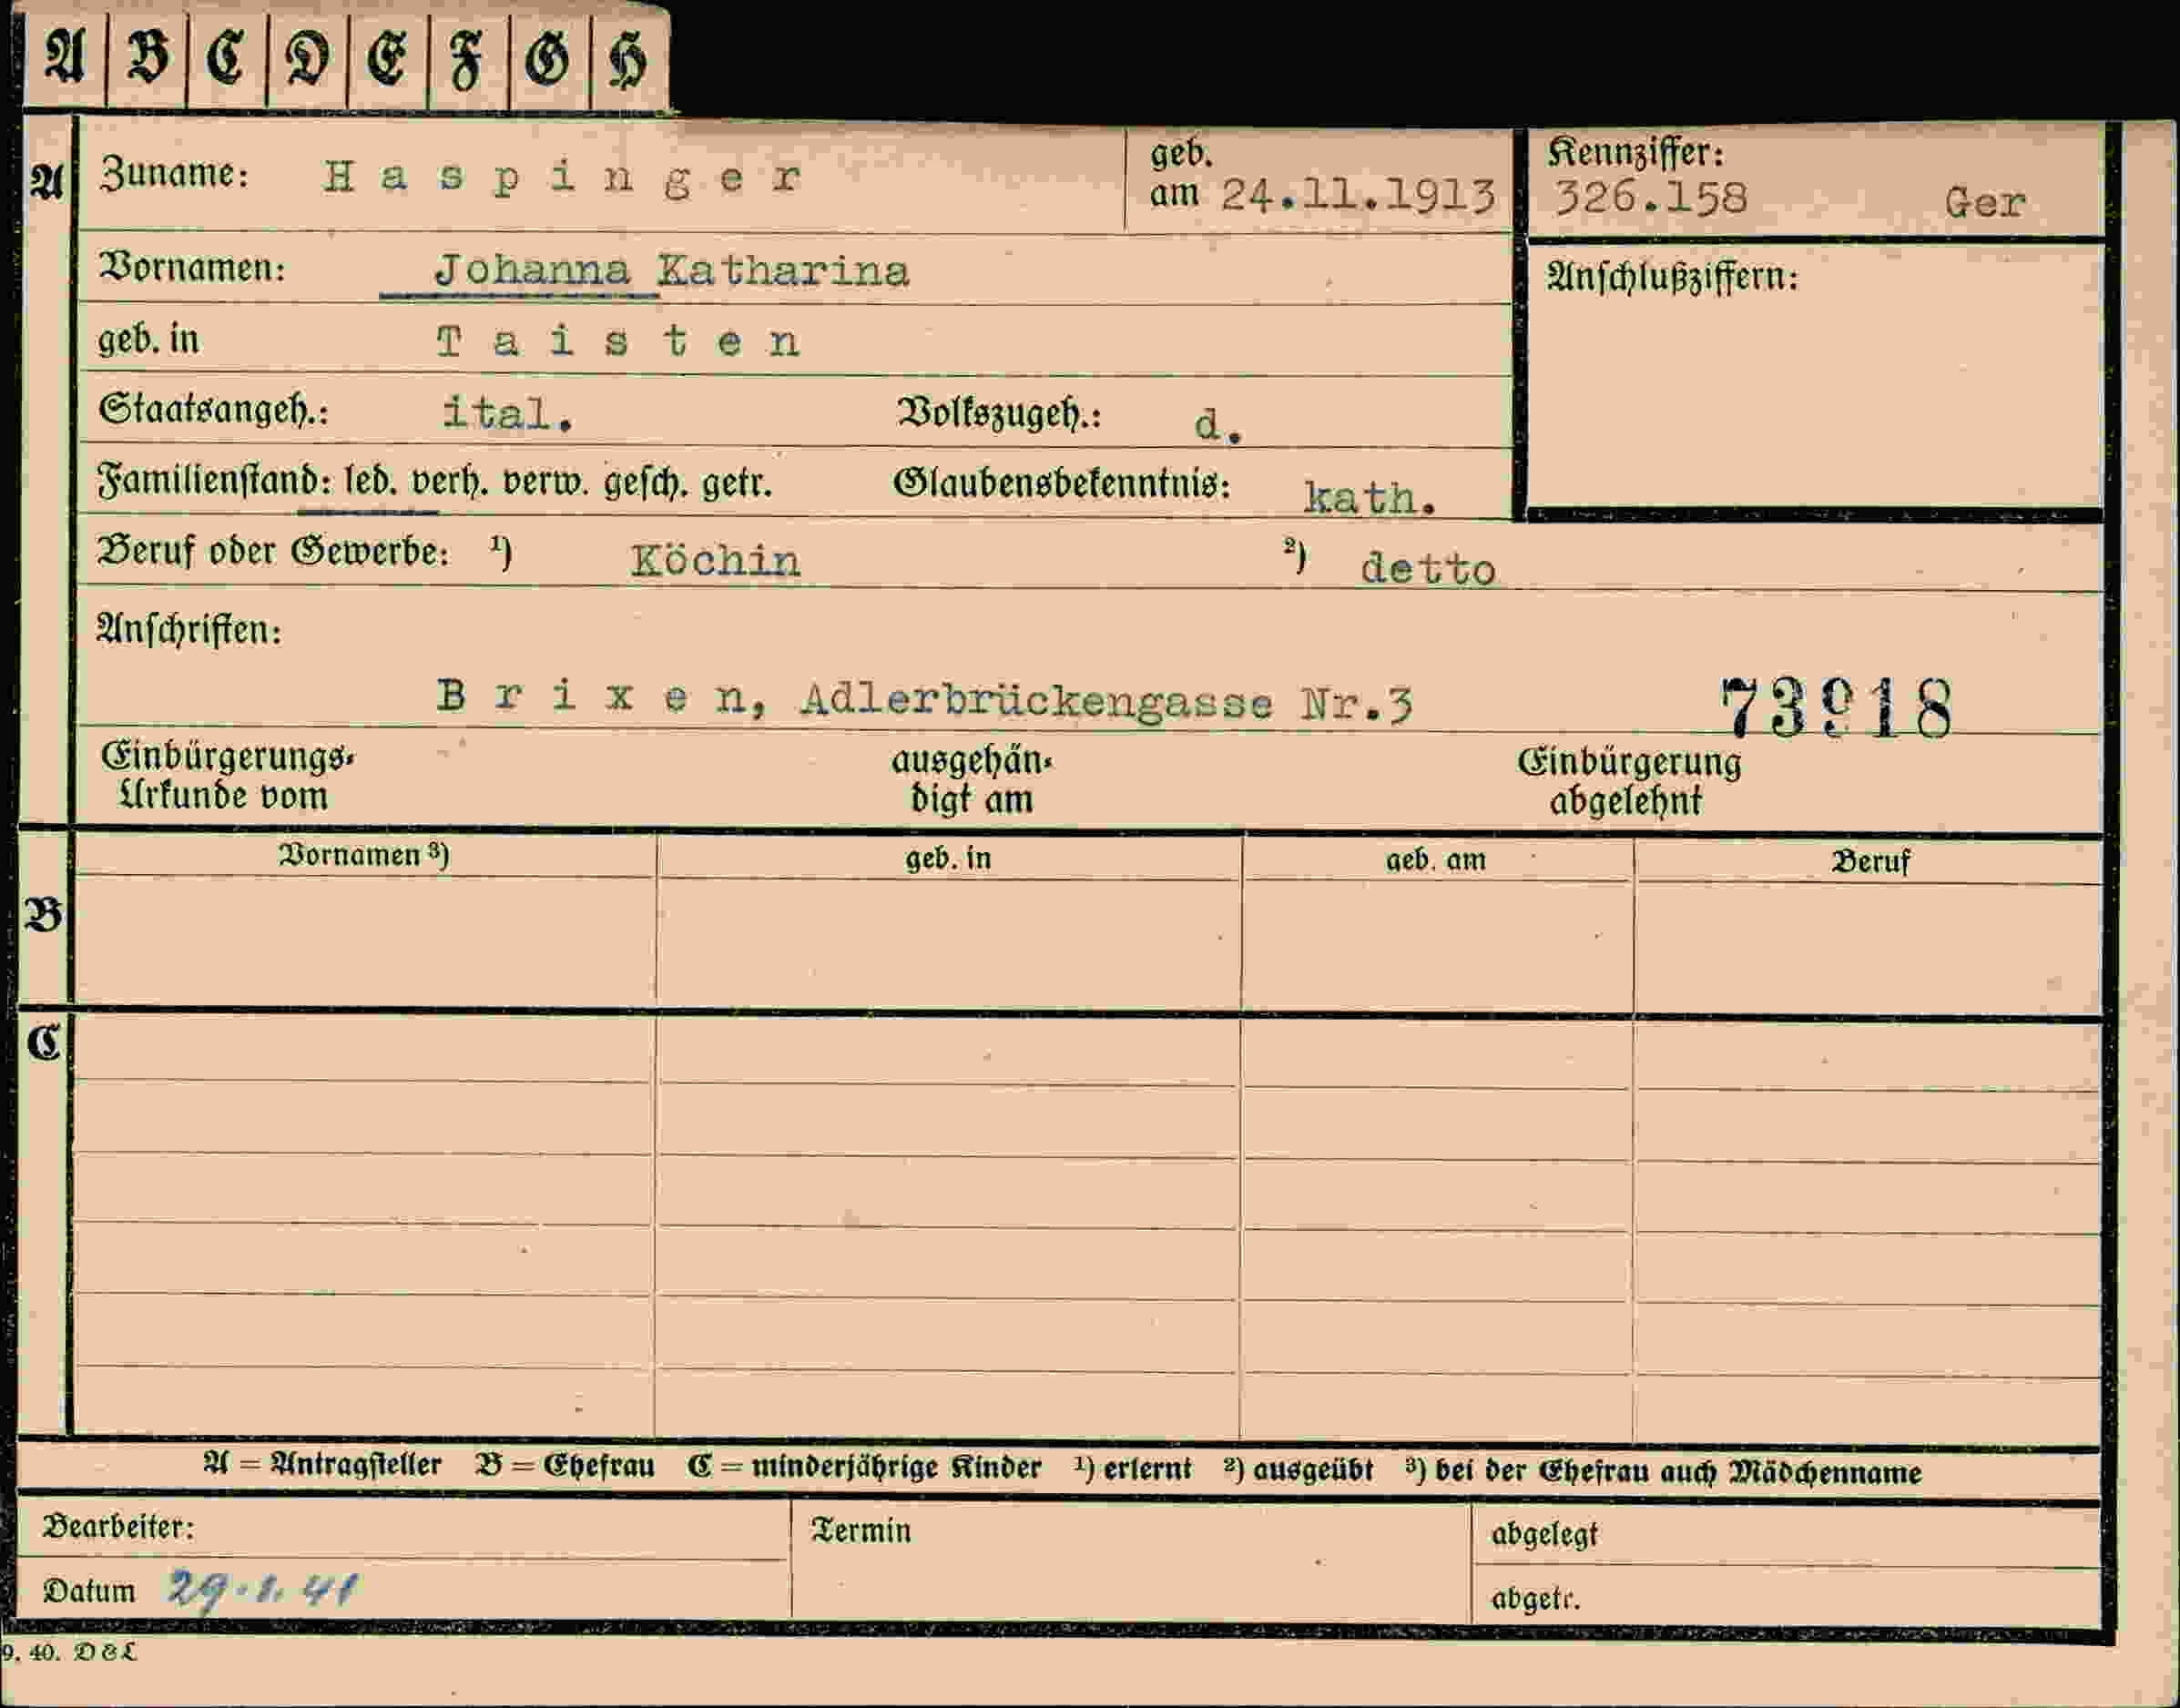 A B C D E F G H
A Zuname: Haspinger geb. am 24.11.1913 Kennziffer: 326.158 Ger
Vornamen: Johanna Katharina Anschlußziffern:
geb. in Taisten
Staatsangeh.: ital. Volkszugeh.: d.
Familienstand: led. verh. verw. gesch. getr. Glaubensbekenntnis: kath.
Beruf oder Gewerbe: 1) Köchin 2) detto
Anschriften:
Brixen, Adlerbrückengasse Nr.3 73918
Einbürgerungs- ausgehän- Einbürgerung
Urkunde vom digt am abgelehnt
Vornamen 3) geb. in geb. am Beruf
B
C
A = Antragsteller B = Ehefrau C = minderjährige Kinder 1) erlernt 2) ausgeübt 3) bei der Ehefrau auch Mädchenname
Bearbeiter: Termin abgelegt
Datum 29.1.41 abgetr.
9. 40. D & L